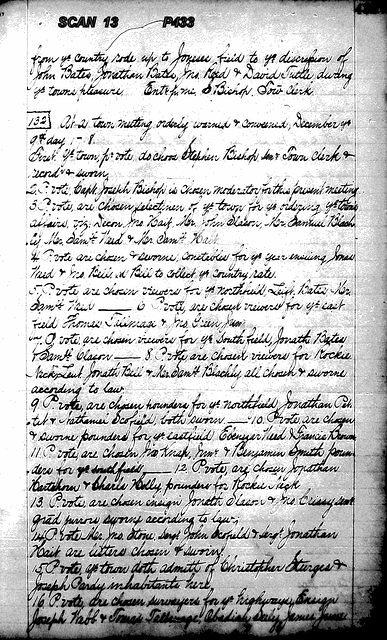 SCAN 13 P433
from ye country rode up to Joneses field to ye descresion of
John Bates, Jonathan Bates, Jno. Reed & David Tuttle, during
ye towns pleasure. Entr. p. me, S Bishop, Tow clerk
132 At a town meeting orderly warned & convened, December ye
9th day
First ye town p vote do chose Stephen Bishop Town Clerk &
record & sworn,
2. P. vote, Capt. Joseph Bishop is chosen moderator for this present meeting
3. P. vote, are chosen selectmen of ye town for ye ordering ye towns
affairs, viz, Jno Hait, Mr. John Slason, Mr. Samuel Blach
ly Mr. Saml. Weed & Mr. Saml. Hait
4. P vote are chosen & sworne, constables for ye year ensuing Jonas
Weed & Jno Bell, Bell to collect ye country rate.
5. P vote are chosen viewers for ye Northfield, Leiut. Bates Mr.
Saml. Weed 6 P vote, are chosen viewers for ye east
field Thomas Talmage & Jno. Green,
P vote, are chosen viewers for ye Southfield, Jonath Bates
& Daml. Slason 8. P vote are chosen viewers for Rockie
Neck, Leut Jonath Bell & Mr. Saml Blachly all chosen & sworne
according to law.
9. P. vote, are chosen pounders for ye Northfield, Jonathan Pet
tit & Nathaniel Scofield, both sworn 10. P vote, are chosen
& sworne pounders for ye eastfield, Ebenezer Weed & Francis Brown
11. P vote, are chosen Jno Knap, & Benjamin Smith poun-
ders for ye south field 12. P vote, are chosen Jonathan
& Charles pounders for Rockie Neck
13. P. vote, are chosen ensign Jonath Slason & Jno.
grad sworne according to law,
14. P vote Mr. Jno. Stone, John Scofield & sergt. Jonathan
Hait are listers chosen & sworn.
15. P vote ye town doth admitt of Christopher Sturges &
Joseph Garsy inhabitants here,
16. P vote, are chosen surveyers for ye highways, Ensign
Joseph Webb & Tomas Talmage, Obadiah James